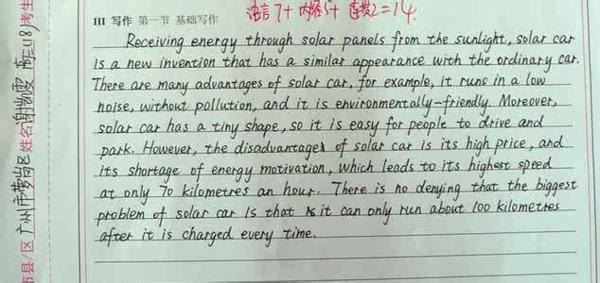 III 写作 第一节 基础写作
语言7+内容5+连贯2=14
Receiving energy through solar panels from the sunlight, solar car
is a new invention that has a similar appearance with the ordinary car.
There are many advantages of solar car, for example, it runs in a low
noise, without pollution, and it is environmentally-friendly. Moreover,
solar car has a tiny shape, so it is easy for people to drive and
park. However, the disadvantages of solar car is its high price, and
its shortage of energy motivation, which leads to its highest speed
at only 70 kilometres an hour. There is no denying that the biggest
problem of solar car is that it can only run about 100 kilometres
after it is charged every time.
市县/区 广州市 区 姓名 考生